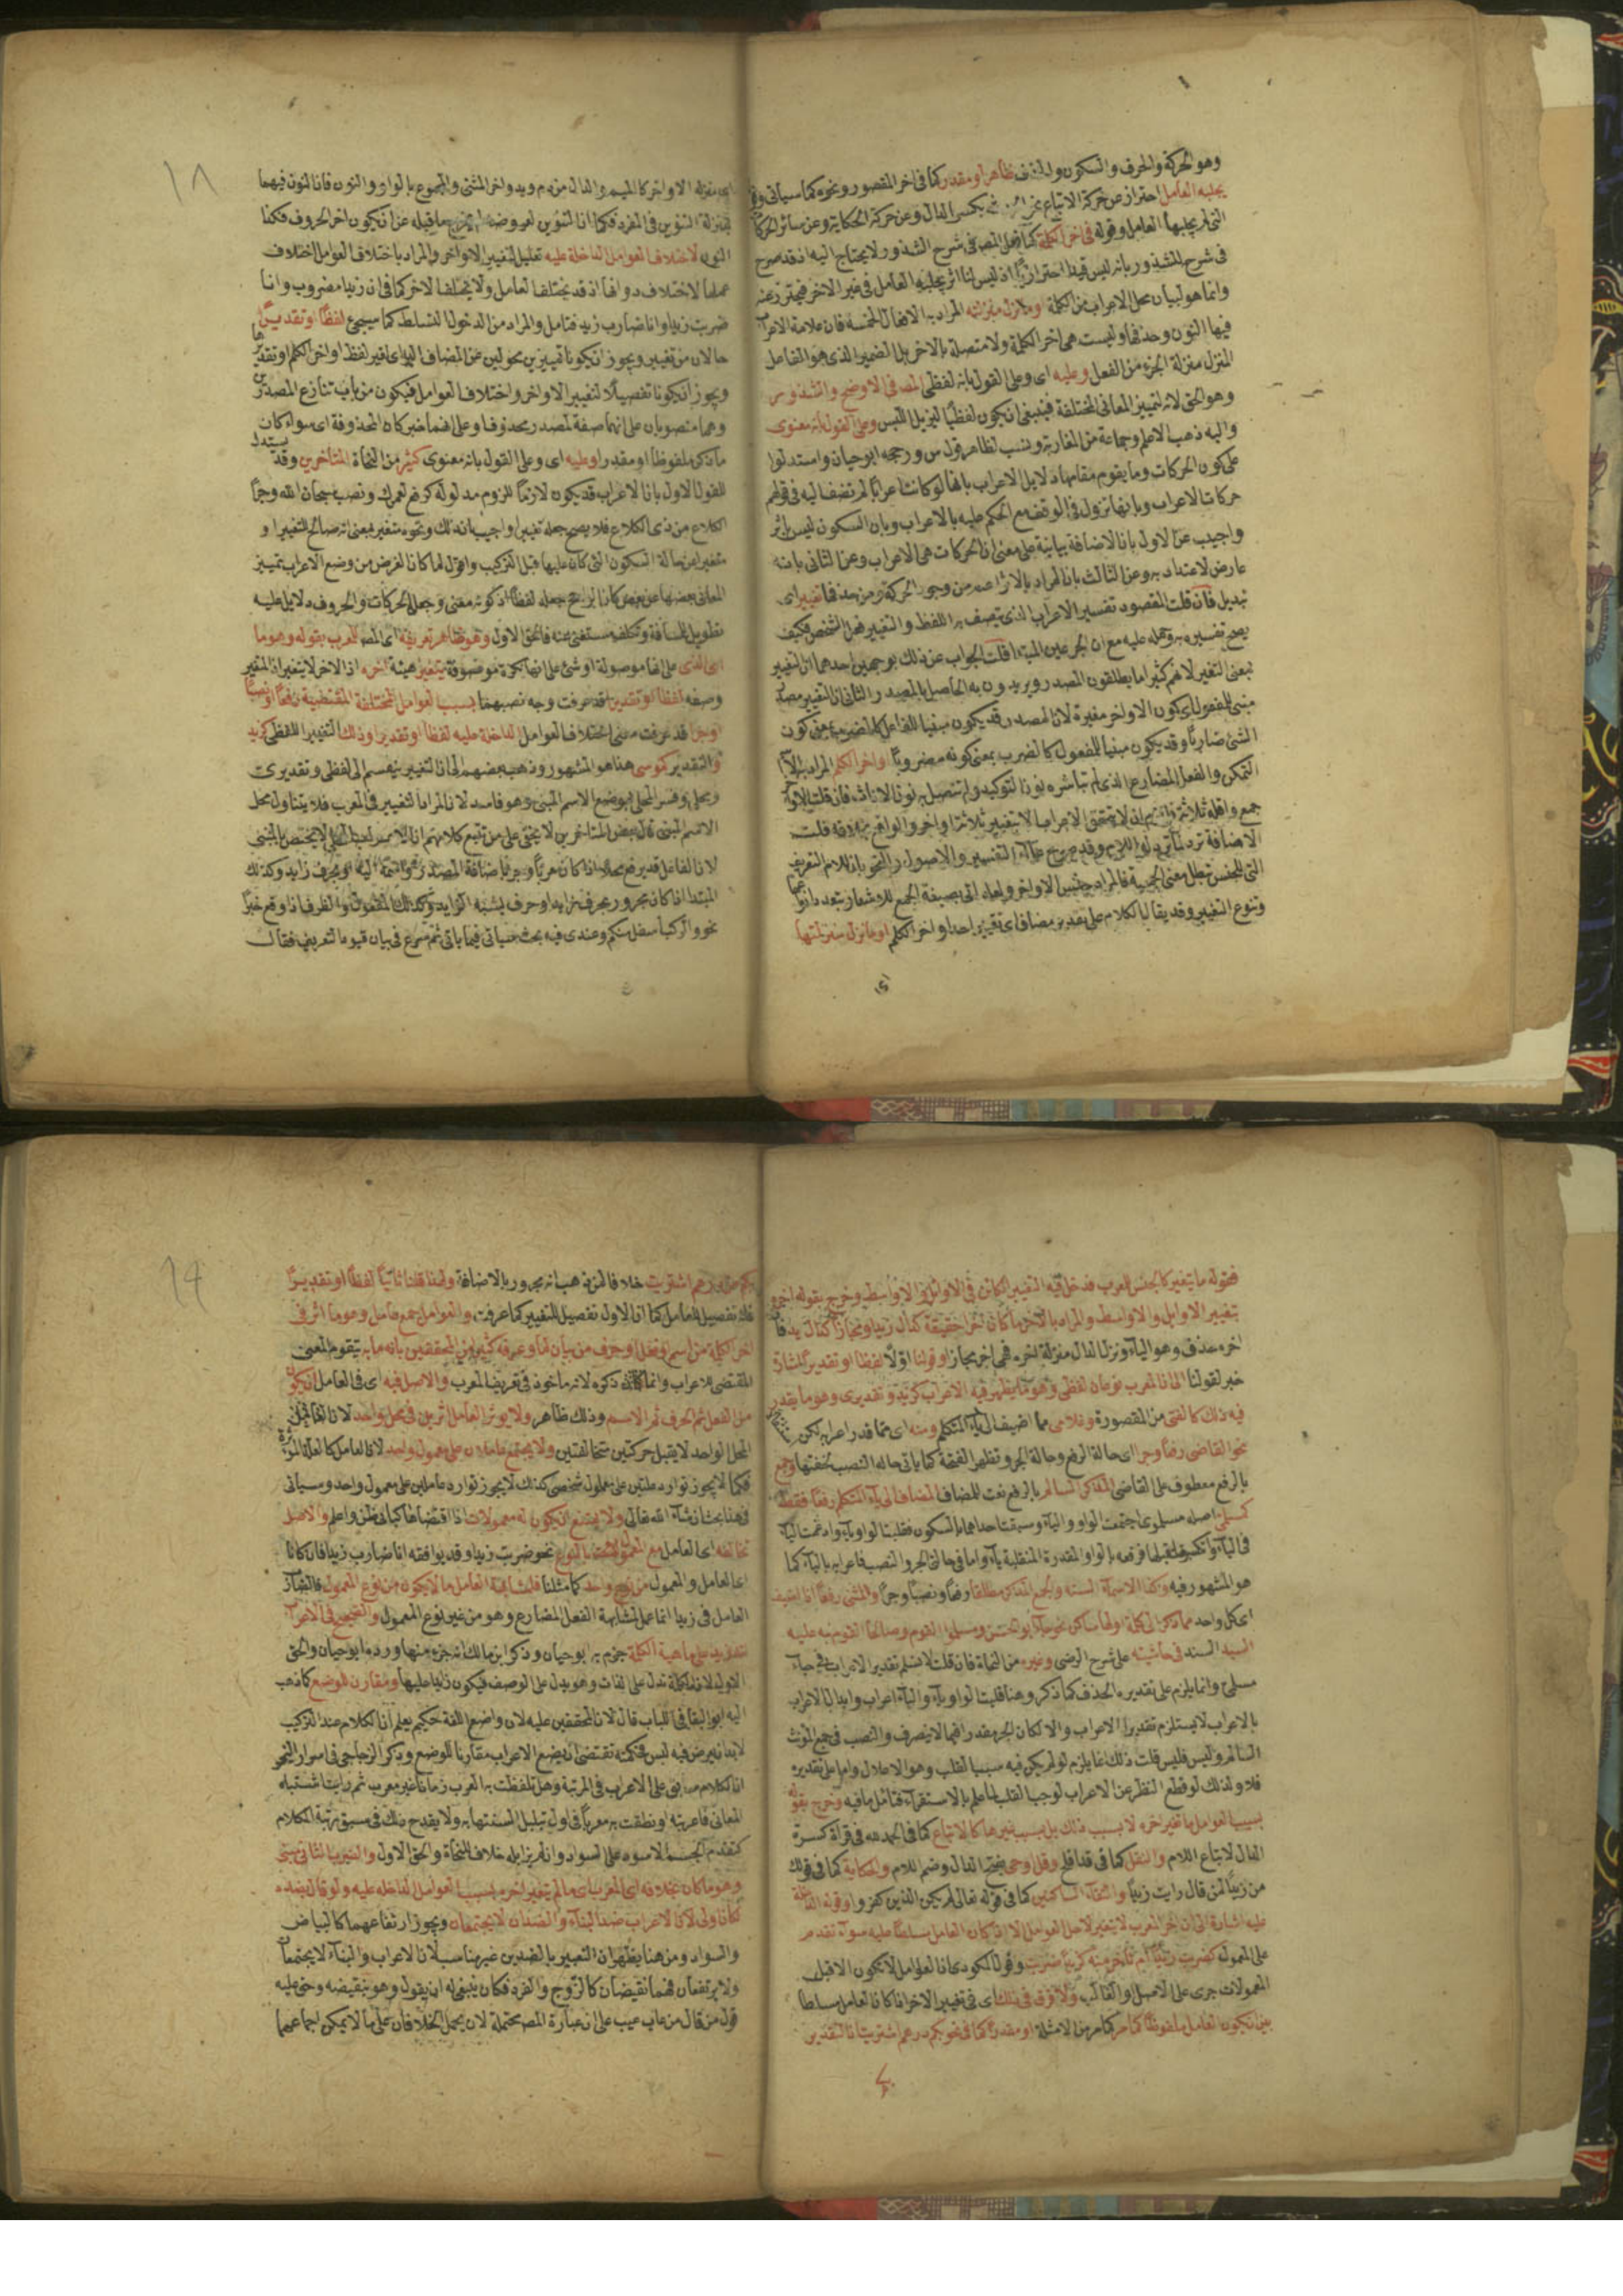 وهو الحركة والحرف والسكون والحذف ظاهر او مقدر كما فى اخر المقصور ونحوه كما سياتى
يجلبه العامل احتراز عن حركة الاتباع نحو بكسر الدال وعن حركة الحكاية وعن سائر الحركات
التى لم يجلبها العامل وقوله فى اخر الكلمة كما فعل المص فى شرح الشذور لا يحتاج اليه اذ قد صرح
فى شرح الشذور بانه ليس قيدا احترازيا اذ ليس لنا اثر يجلبه العامل فى غير الاخر فيحترز عنه
وانما هو لبيان محل الاعراب من الكلمة او ما نزل منزلته المراد به الافعال الخمسة فان علامة الاعراب
فيها النون وحذفها وليست هى اخر الكلمة ولا متصلة بالاخر بل الضمير الذى هو الفاعل
المنزل منزلة الجزء من الفعل وعليه اى وعلى القول بانه لفظى المص فى الاوضح والشذور
وهو الحق لانه لتمييز المعانى المختلفة فينبغى ان يكون لفظيا ليزيل اللبس وعلى القول بانه معنوى
واليه ذهب الاعلم وجماعة من المغاربة وينسب لظاهر قول س ورجحه ابو حيان واستدلوا
على كون الحركات وما يقوم مقامها دلايل الاعراب بانها لو كانت اعرابا لم تضف اليه فى قولهم
حركات الاعراب وبانها تزول فى الوقف مع الحكم عليه بالاعراب وبان السكون ليس باثر
واجيب عن الاول بان الاضافة بيانية على معنى ان الحركات هى الاعراب وعن الثانى بانه
عارض لا عتداد به وعن الثالث بان المراد بالاثر اعم من وجود الحركة ومن حذفها تغيير اى
تبديل فان قلت المقصود تفسير الاعراب الذى يتصف به اللفظ والتغيير فعل الشخص فكيف
يصح تفسيره به وحمله عليه مع ان الخبر عين المبتدا قلت الجواب عن ذلك بوجهين احدهما ان التغيير
بمعنى التغير لانهم كثيرا ما يطلقون المصدر ويريدون به الحاصل بالمصدر والثانى ان التغيير مصدر
مبنى للمفعول اى كون الاواخر مغيرة لان المصدر قد يكون مبنيا للفاعل كالضرب بمعنى كون
الشئ ضاربا وقد يكون مبنيا للمفعول كالضرب بمعنى كونه مضروبا اواخر الكلم المراد به الاسم
المتمكن والفعل المضارع الذى لم تباشره نون التوكيد ولم تتصل به نون الاناث فان قلت الاواخر
جمع واقله ثلاثة لا يتحقق الاعراب الا بتغيير ثلاثة اواخر والواقع بخلافه قلت
الاضافة ترد لما ترد له اللام وقد صرح علماء التفسير والاصول والنحو بان لام التعريف
التى للجنس تبطل معنى الجمعية فالمراد جنس الاواخر ولعله اتى بصيغة الجمع للاشعار بتعدد انواعها
وتنوع التغيير وقد يقال الكلام على تقدير مضاف اى تغيير احد اواخر الكلم او ما نزل منزلتها
اى منزلة الاواخر كالميم والدال من دم ويد واخر المثنى والمجموع بالواو والنون فان النون فيهما
بمنزلة التنوين فى المفرد فكما ان التنوين لعروضه لم يخرج ما قبله عن ان يكون اخر الحروف فكذا
النون لاختلاف العوامل الداخلة عليه تعليل لتغيير الاواخر والمراد باختلاف العوامل اختلاف
عملها لا اختلاف ذواتها اذ قد يختلف العامل ولا يختلف الاخر كما فى ان زيدا مضروب وانا
ضربت زيدا وانا ضارب زيد فتامل والمراد من الدخول التسلط كما سيجئ لفظا او تقديرا
حالان من تغيير ويجوز ان يكونا تمييزين محولين عن المضاف اليه اى تغيير لفظ اواخر الكلم او تقديرها
ويجوز ان يكونا تفصيلا لتغيير الاواخر واختلاف العوامل فيكون من باب تنازع المصدرين
وهما منصوبان على انهما صفة لمصدر محذوف او على انهما خبر كان المحذوفة اى سواء كان
ما ذكر ملفوظا او مقدرا وعليه اى وعلى القول بانه معنوى كثير من النحاة المتاخرين وقد يستدل
للقول الاول بان الاعراب قد يكون لازما للزوم مدلوله كرفع لعمرك ونصب سبحان الله وجر
الكلاع من ذى الكلاع فلا يصح جعله تغييرا واجيب بان ذلك ونحوه متغير بمعنى انه صالح للتغيير او
متغير عن حالة السكون التى كان عليها قبل التركيب واقول لما كان الغرض من وضع الاعراب تمييز
المعانى بعضها عن بعض كان الراجح جعله لفظا اذ كونه معنى وجعل الحركات والحروف دلايل عليه
تطويل للمسافة وتكلف مستغنى عنه فالحق الاول وهو ظاهر تعريفه اى المص المعرب بقوله وهو ما
اى الذى على انها موصولة او شئ على انها نكرة موصوفة يتغير هيئة اخره اذ الاخر لا يتغير اذ المتغير
وصفه لفظا او تقديرا قد عرفت وجه نصبهما بسبب العوامل المختلفة المقتضية رفعا او نصبا
او جرا قد عرفت معنى اختلاف العوامل الداخلة عليه لفظا او تقديرا وذلك التغيير اللفظى كزيد
والتقدير كموسى هذا هو المشهور وذهب بعضهم الى ان التغيير ينقسم الى لفظى وتقديرى
ومحلى وفسر المحلى بوضع الاسم المبنى وهو فاسد لان المراد التغيير فى المعرب فلا يتناول محل
الاسم المبنى قال بعض المتاخرين لا يخفى على من تتبع كلامهم ان الاعراب المحلى لا يختص بالمبنى
لان الفاعل قد يرفع محلا اذا كان معربا وجر باضافة المصدر اليه او بحرف زايد وكذلك
المبتدا اذا كان مجرور بحرف زايد او حرف يشبه الزايد وكذلك المفعول والظرف اذا وقع خبرا
نحو والركب اسفل منكم وعندى فيه بحث سياتى فيما ياتى ثم شرع فى بيان قيود التعريف فقال
فقوله ما يتغير كالجنس للمعرب فدخل فيه التغيير الكائن فى الاوائل والاواسط وخرج بقوله اخره
تغيير الاوايل والاواسط والمراد بالاخر ما كان اخرا حقيقة كدال زيد او مجازا كدال يد فان
اخره حذف وهو الياء ونزل الدال منزلة اخره فهى اخر مجازا وقولنا اولا لفظا او تقديرا اشارة
خبر لقولنا الى ان المعرب نوعان لفظى وهو ما يظهر فيه الاعراب كزيد وتقديرى وهو ما يقدر
فيه ذلك كالفتى من المقصورة وغلامى مما اضيف الى ياء المتكلم ومنه اى مما قدر اعرابه لكن
نحو القاضى رفعا وجرا اى حالة الرفع وحالة الجر وتظهر الفتحة كما ياتى حالة النصب لخفتها وجمع
بالرفع معطوف على القاضى المذكر السالم بالرفع نعت للمضاف المضاف الى ياء المتكلم رفعا فقط
كمسلمى اصله مسلموى اجتمعت الواو والياء وسبقت احداهما بالسكون فقلبت الواو ياء وادغمت الياء
فى الياء وانكسر ما قبلها فرفعه بالواو المقدرة المنقلبة ياء واما فى حالتى الجر والنصب فاعرابه بالياء كما
هو المشهور فيه وكذا الاسماء الستة والجمع المذكر مطلقا رفعا ونصبا وجرا والمثنى رفعا اذا اضيف
اى كل واحد مما ذكر الى كلمة اولها ساكن نحو جاء ابو الحسن ومسلموا القوم وصالحا القوم نبه عليه
السيد السند فى حاشيته على شرح الرضى وغيره من النحاة فان قلت لا نسلم تقدير الاعراب فى جاء
مسلمى وانما يلزم على تقدير الحذف كما ذكر وهنا قلبت الواو ياء والياء اعراب وابدال الاعراب
بالاعراب لا يستلزم تقدير الاعراب والا لكان الجر مقدرا فيما لا ينصرف والنصب فى جمع المونث
السالم وليس فليس قلت ذلك انما يلزم لو لم يكن فيه سبب القلب وهو الاعلال واما على تقديره
فلا ولذلك لو قطع النظر عن الاعراب لوجب القلب لما علم بالاستقراء فتامل ما فيه وخرج بقوله
بسبب العوامل ما تغير اخره لا بسبب ذلك بل بسبب غيرها كالاتباع كما فى الحمد لله فى قراة كسرة
الدال لاتباع اللام والنقل كما فى قد افلح وقل اوحى بفتح الدال وضم اللام والحكاية كما فى قولك
من زيدا لمن قال رايت زيدا والتقاء الساكنين كما فى قوله تعالى لم يكن الذين كفروا وقوله الداخلة
عليه اشارة الى ان اخر المعرب لا يتغير لاجل العوامل الا اذ كان العامل مسلطا عليه سواء تقدم
على المعمول كضربت زيدا ام تاخر عنه كزيدا ضربت وقول المكودى ان العوامل لا تكون الا قبل
المعمولات جرى على الاصل والغالب ولا فرق فى ذلك اى فى تغيير الاخر اذا كان العامل مسلطا
بين ان يكون العامل ملفوظا كما مر من الامثلة او مقدرا كما فى نحو بكم درهم اشتريت اذ التقدير
بكم من درهم اشتريت خلافا لمن ذهب انه مجرور بالاضافة ولهذا قلنا ثانيا لفظا او تقديرا
فانه تفصيل للعامل كما ان الاول تفصيل للتغيير كما عرفت والعوامل جمع عامل وهو ما اثر فى
اخر الكلمة من اسم او فعل او حرف من بيان لما وعرفه كثير من المحققين بانه ما به يتقوم المعنى
المقتضى للاعراب وانما ذكره لانه ماخوذ فى تعريف المعرب والاصل فيه اى فى العامل ان يكون
من الفعل ثم الحرف ثم الاسم وذلك ظاهر ولا يوثر العامل اثرين فى محل واحد لان
المحل الواحد لا يقبل حركتين متخالفتين ولا يجتمع عاملان على معمول واحد لان العامل كالعلة الموثرة
فكما لا يجوز توارد علتين على معلول شخصى كذلك لا يجوز توارد عاملين على معمول واحد وسياتى
فى هذا بحث ان شاء الله تعالى ولا يمتنع ان يكون له معمولات اذا اقتضاها كباب ظن واعلم والاصل
تخالفه اى العامل مع المعمول بالنوع نحو ضربت زيدا وقد يوافقه انا ضارب زيدا فان كانا
اى العامل والمعمول من نوع واحد كما مثلنا فلمشابهة العامل ما لا يكون من نوع المعمول فالضارب
العامل فى زيدا انما عمل لمشابهة الفعل المضارع وهو من غير نوع المعمول والصحيح فى الاعراب
انه زايد على ماهية الكلمة جزم به ابو حيان وذكر ابن مالك انه جزء منها ورده ابو حيان والحق
الاول لان الكلمة تدل على الذات وهو يدل على الوصف فيكون زايدا عليها ومقارن للوضع كما ذهب
اليه ابو البقا فى اللباب قال لان المحققين عليه لان واضع اللغة حكيم يعلم ان الكلام عند التركيب
لابد ان يعرض فيه لبس فحكمته تقتضى ان يضع الاعراب مقارنا للوضع وذكر الزجاجى فى اسرار النحو
ان الكلام سابق على الاعراب فى المرتبة وهل تلفظت به العرب زمانا غير معرب ثم رات اشتباه
المعانى فاعربته او نطقت به معربا فى اول تبلبل السنتها به ولا يقدح ذلك فى سبق رتبة الكلام
كتقدم الجسم الاسود على السواد وان لم يزايله خلاف للنحاة والحق الاول والضرب الثانى مبنى
وهو ما كان بخلافه اى المعرب اى ما لم يتغير اخره بسبب العوامل الداخلة عليه ولو قال بضده
لكان اولى لان الاعراب ضد البناء والضدان لا يجتمعان ويجوز ارتفاعهما كالبياض
والسواد ومن هنا يظهر ان التعبير بالضدين غير مناسب لان الاعراب والبناء لا يجتمعان
ولا يرتفعان فهما نقيضان كالزوج والفرد فكان ينبغى له ان يقول وهو بنقيضه وحق عليه
قول من قال من عاب عيب على ان عبارة المص محتملة لان يحمل الخلاف على ما لا يمكن اجماعهما